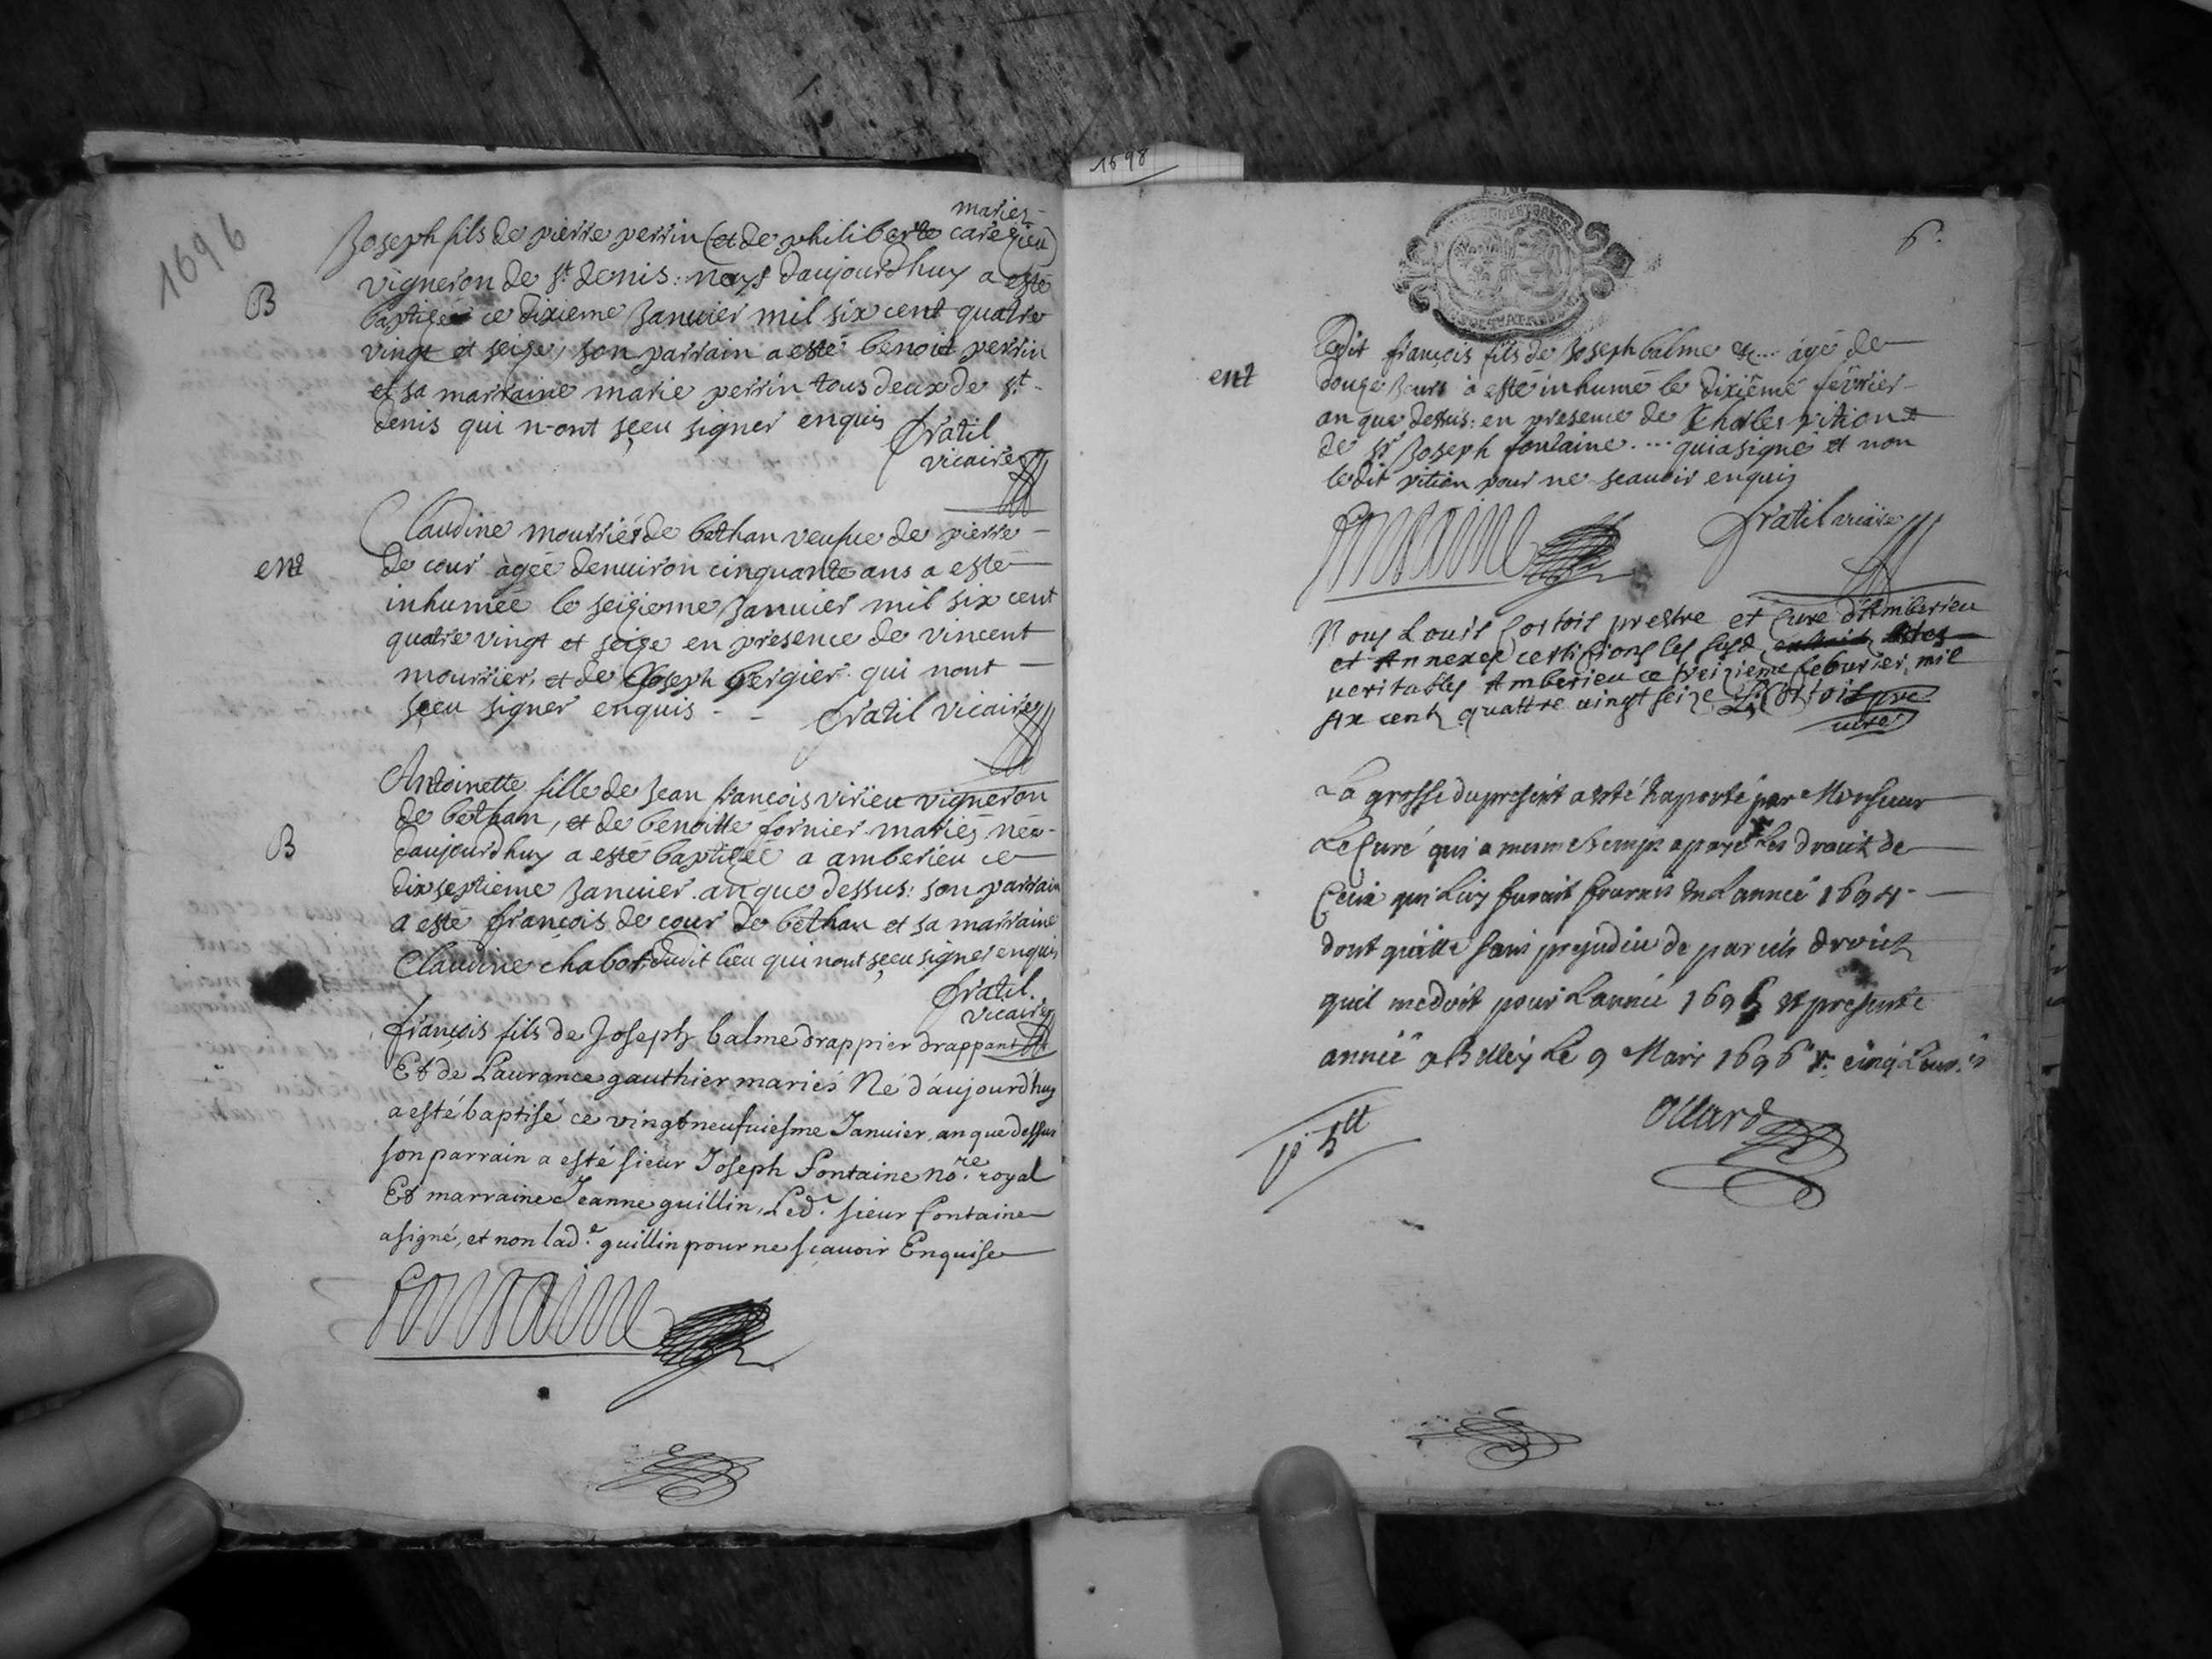 1696
maries
Joseph fils de pierre perrin (et de philiberte
vigneron de st denis: nays daujourdhuy a esté
B
baptisé ce dixieme Januier mil six cent quatre
vingt et seize, son parrain a esté benoit perrin
et sa marraine marie perrin tous deux de st
denis qui n-ont sçeu signer enquis
fratil
vicaire
Claudine mourrier de bethan veufue de pierre
ent
de cour àgée denuiron cinquante ans a esté
inhumée le seizieme Januier mil six cent
quatre vingt et seize en presence de vincent
mourrier, et de Joseph gergier qui nont
sçeu signer enquis - - fratil vicaire
Antoinette fille de Jean françois virieu vigneron
de bethan, et de benoitte fornier mariés née
B
daujourdhuy a esté baptisée a amberieu ce
dixseptieme Januier an que dessus: son parrain
a esté françois de cour de bethan et sa marraine
Claudine chabot dudit lieu qui nont sçeu signer enquis
fratil.
vicaire
françois fils de Joseph balme drappier drappant
Et de Laurance gauthier mariés Né d'aujourd'huy
a esté baptisé ce vingt neufuiesme Januier an que dessus
son parrain a esté sieur Joseph fontaine no.re royal
Et marraine Jeanne guillin, Led. sieur fontaine
a signé, et non lad.e guillin pour ne sçauoir Enquise
fontaine
1698
6.
Ledit françois fils de Joseph balme &c... àgé de
ent
douze Jours à esté inhumé le dixiême février
an que dessus: en presence de Charles pition et
de sr Joseph fontaine .... qui a signé et non
ledit pition pour ne scauoir enquis
fontaine
fratil vicaire
Nous Louis Cortois prestre et Curé d'Amberieu
et Annexes certifions les susd actes
veritables Amberieu ce treizieme feburier mil
six cent quattre vingt seize L. Cortois pre
curé
La grosse du present a esté raporté par Monsieur
Le Curé qui a mesme temps a payé les droits de
Ceux qui luy furent fournis en Lannee 1694
dont quitte sans prejudice de pareils droits
quil me doit pour Lannee 1695 et presente
année a Belley Le 9 Mars 1696
p 5 tt
Ollard